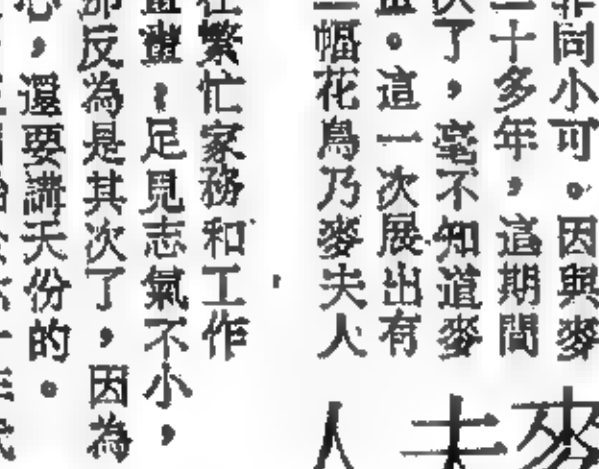 非同小可。因與麥
二十多年,這期間
次了,毫不知道麥
。這一次展出有
幅花鳥乃麥夫人
麥夫人
在繁忙家務和工作
畫,足見志氣不小,
反為是其次了,因為
心,還要講天份的。